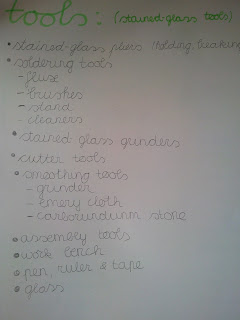 tools: (stained-glass tools)
• stained-glass pliers (holding, breaking
• soldering tools
– fluxe
– brushes
– stand
– cleaners
• stained glass grinders
• cutter tools
• smoothing tools
– grinder
– emery cloth
– carborundum stone
• assembly tools
• work bench
• pen, ruler & tape
• glass